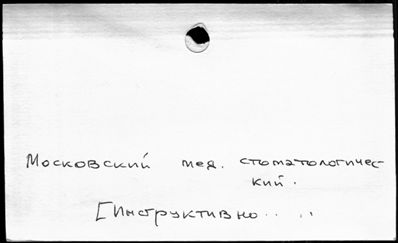 Московский мед. стоматологичес-
кий.
[Инструктивно.. ..